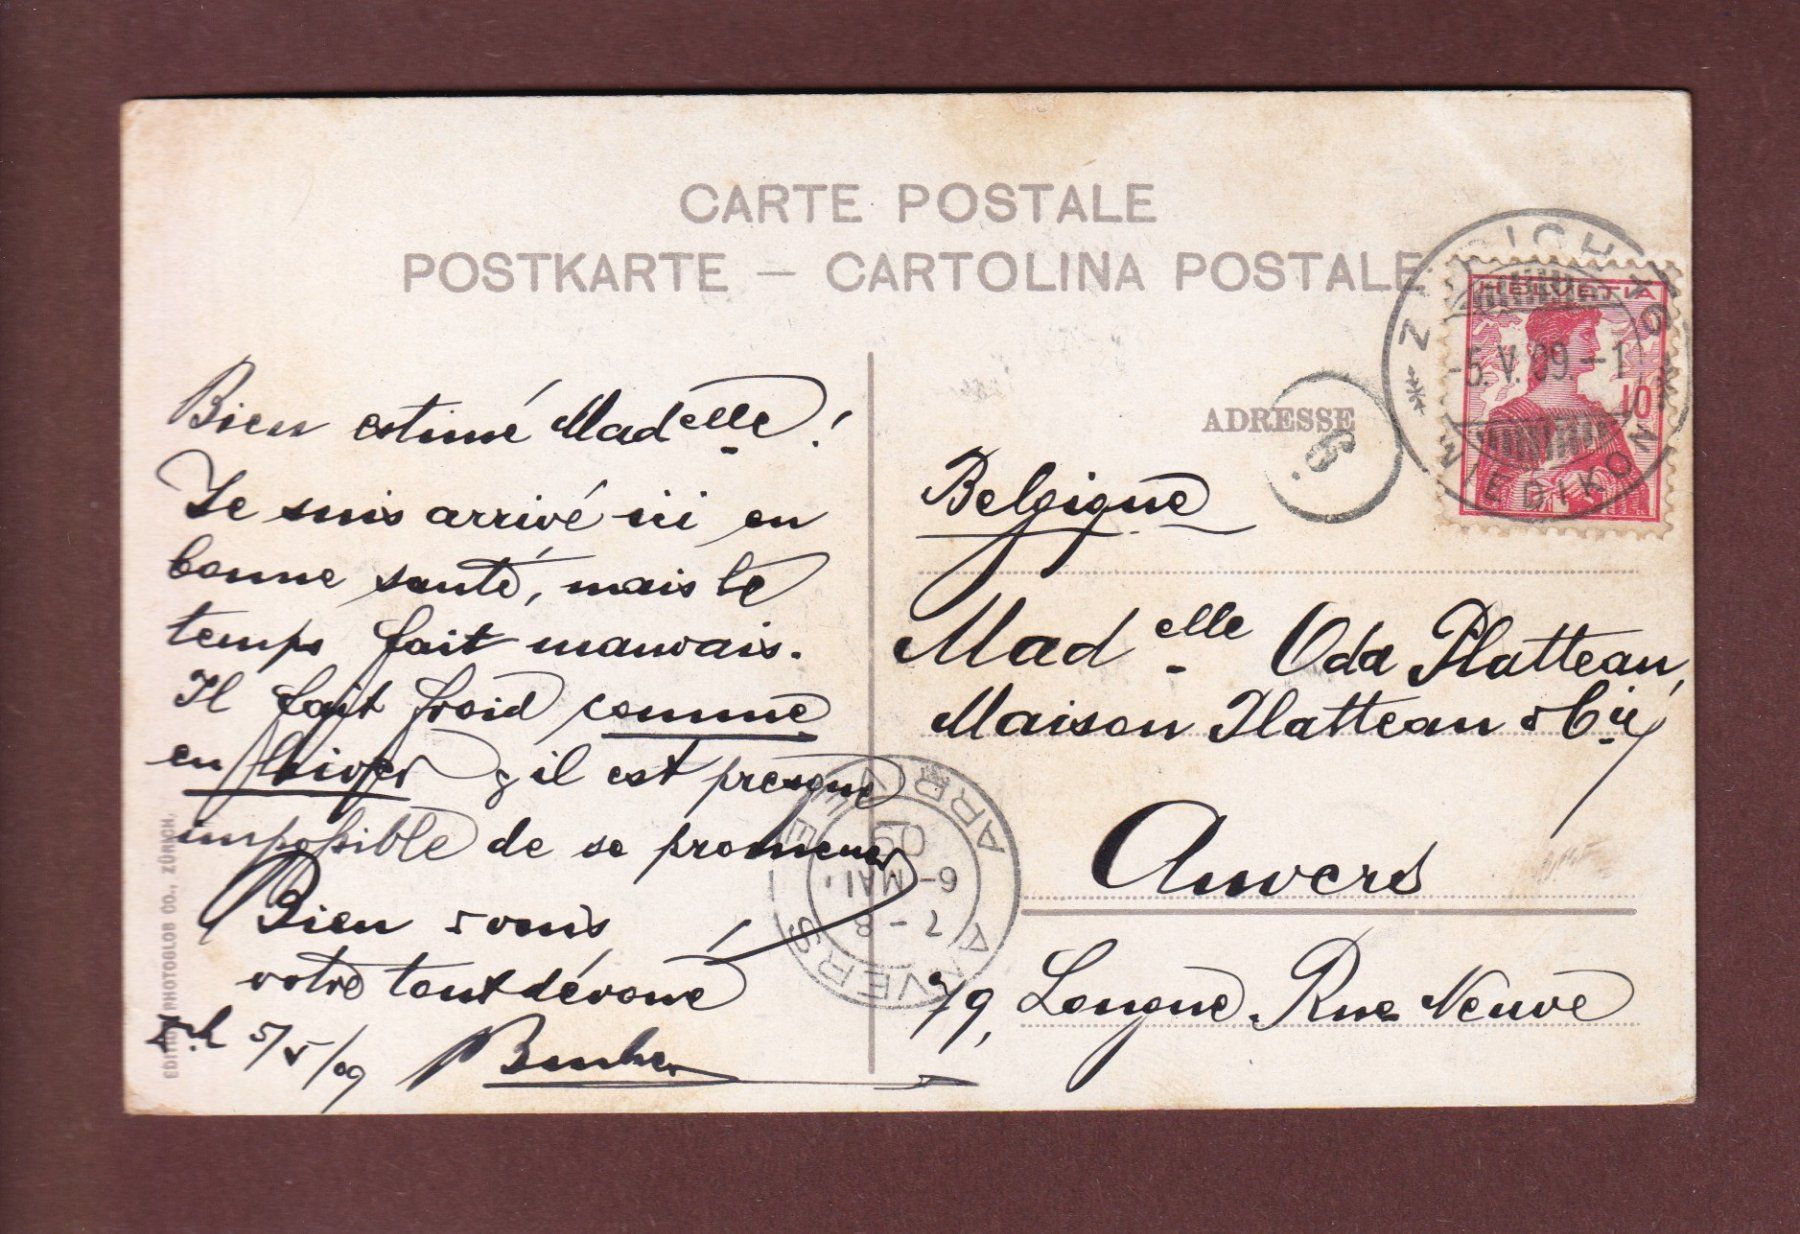 CARTE POSTALE
POSTKARTE — CARTOLINA POSTALE
HELVETIA
10
5.V.09–1
WIEDIKON
ADRESSE
6.
Bien estimé Madelle!
Je suis arrivé ici en
bonne santé, mais le
temps fait mauvais.
Il fait froid comme
en hiver, il est presque
impossible de se promener
Bien à vous
votre tout dévoué
Zch 5/5/09
Belgique
Madelle Oda Platteau,
Maison Platteau & Cie,
Anvers
79, Longue Rue Neuve
ANVERS
ARRIVEE
7–8
6–MAI
09
EDITION PHOTOGLOB CO., ZÜRICH.